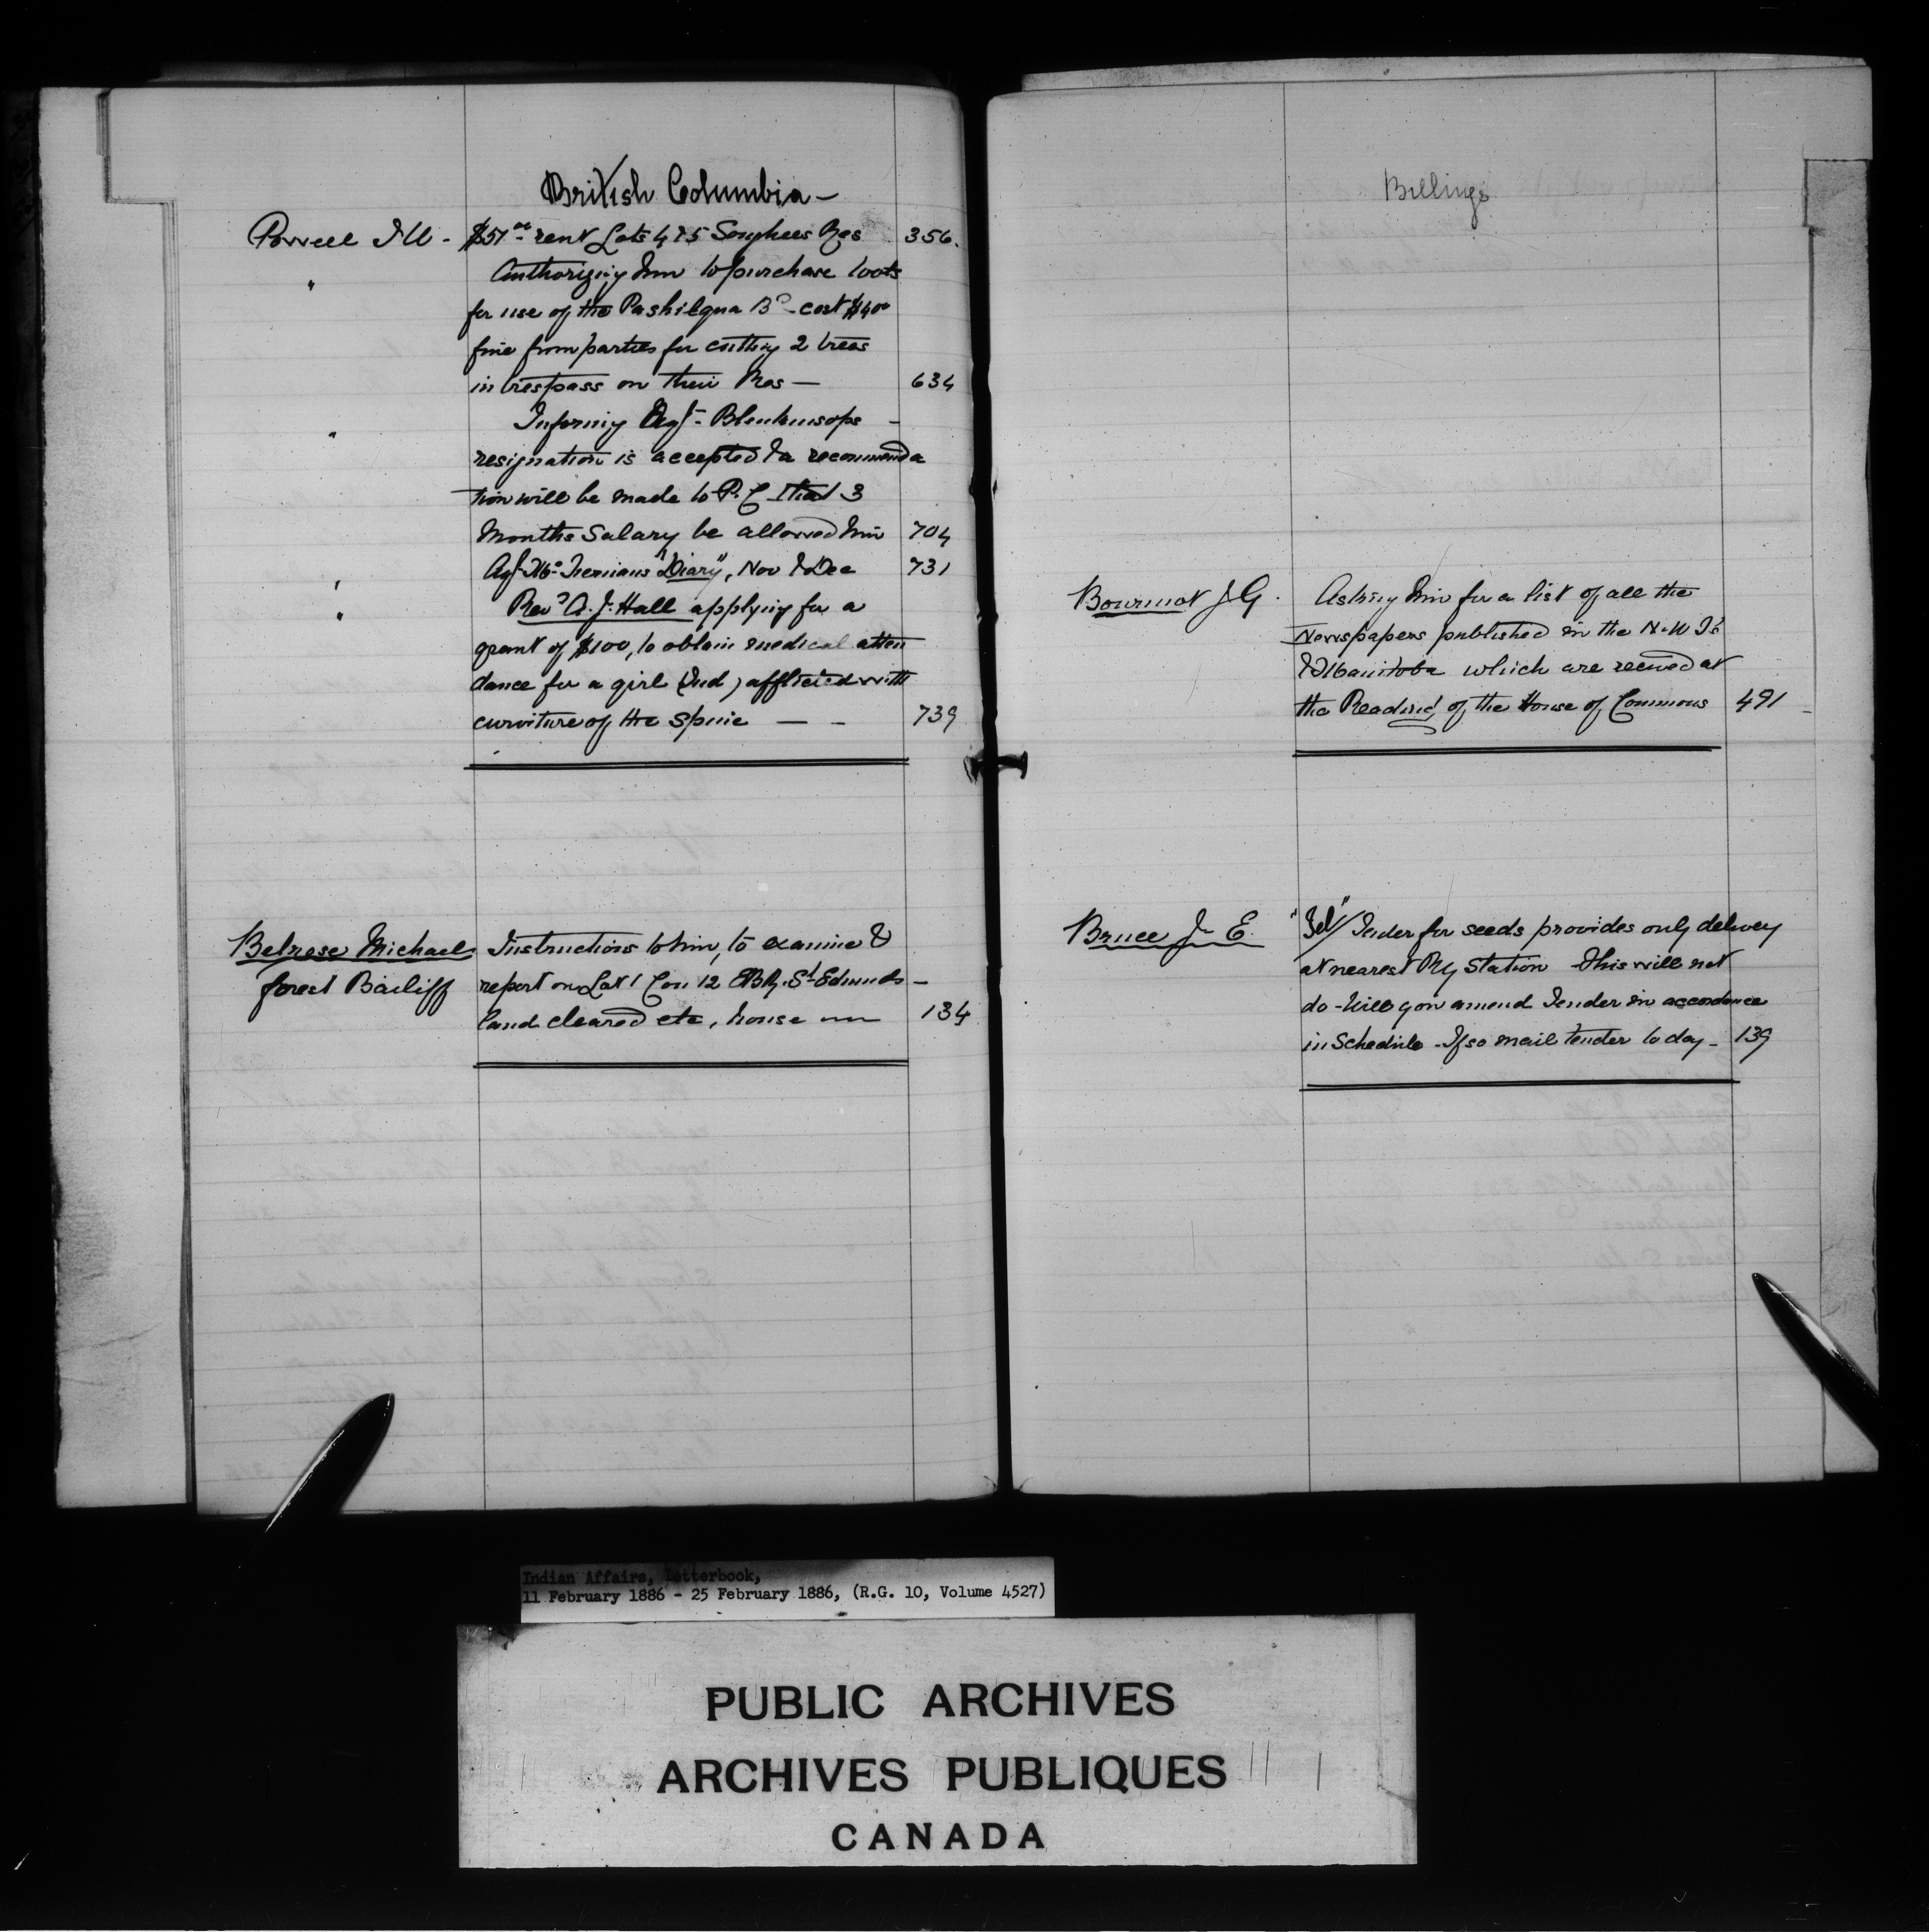 British Columbia -
Powell I W - $51 00 rent Lots 4 & 5 Songhees Res 356.
" Authorizing him to purchase tools
for use of the Pashilqua Bd - cost $40 00
fine from parties for cutting 2 trees
in trespass on their Res - 634
" Informing Agt - Blenkinsops -
resignation is accepted & a recommenda
tion will be made to P. C that 3
Months Salary be allowed him 704
" Agt Mc Tiernans "Diary", Nov & Dec 731
" Revd A. J. Hall applying for a
grant of $100, to obtain medical atten
dance for a girl (Ind) afflicted with
curviture of the Spine - - 739
Belrose Michael Instructions to him, to examine &
forest Bailiff report on Lot 1 Con 12 EBR. St Edmunds -
land cleared etc, house 134
Billings
Bourinot J G. Asking him for a list of all the
Newspapers published in the N.W T's
& Manitoba which are received at
the Reading of the House of Commons 491 -
Bruce J. E. "Tel" / Tender for seeds provides only delivery
at nearest Ry Station This will not
do - Will you amend Tender in accordance
in Schedule - If so mail tender to day - 139
Indian Affairs, Letterbook,
11 February 1886 - 25 February 1886, (R.G. 10, Volume 4527)
PUBLIC ARCHIVES
ARCHIVES PUBLIQUES
CANADA